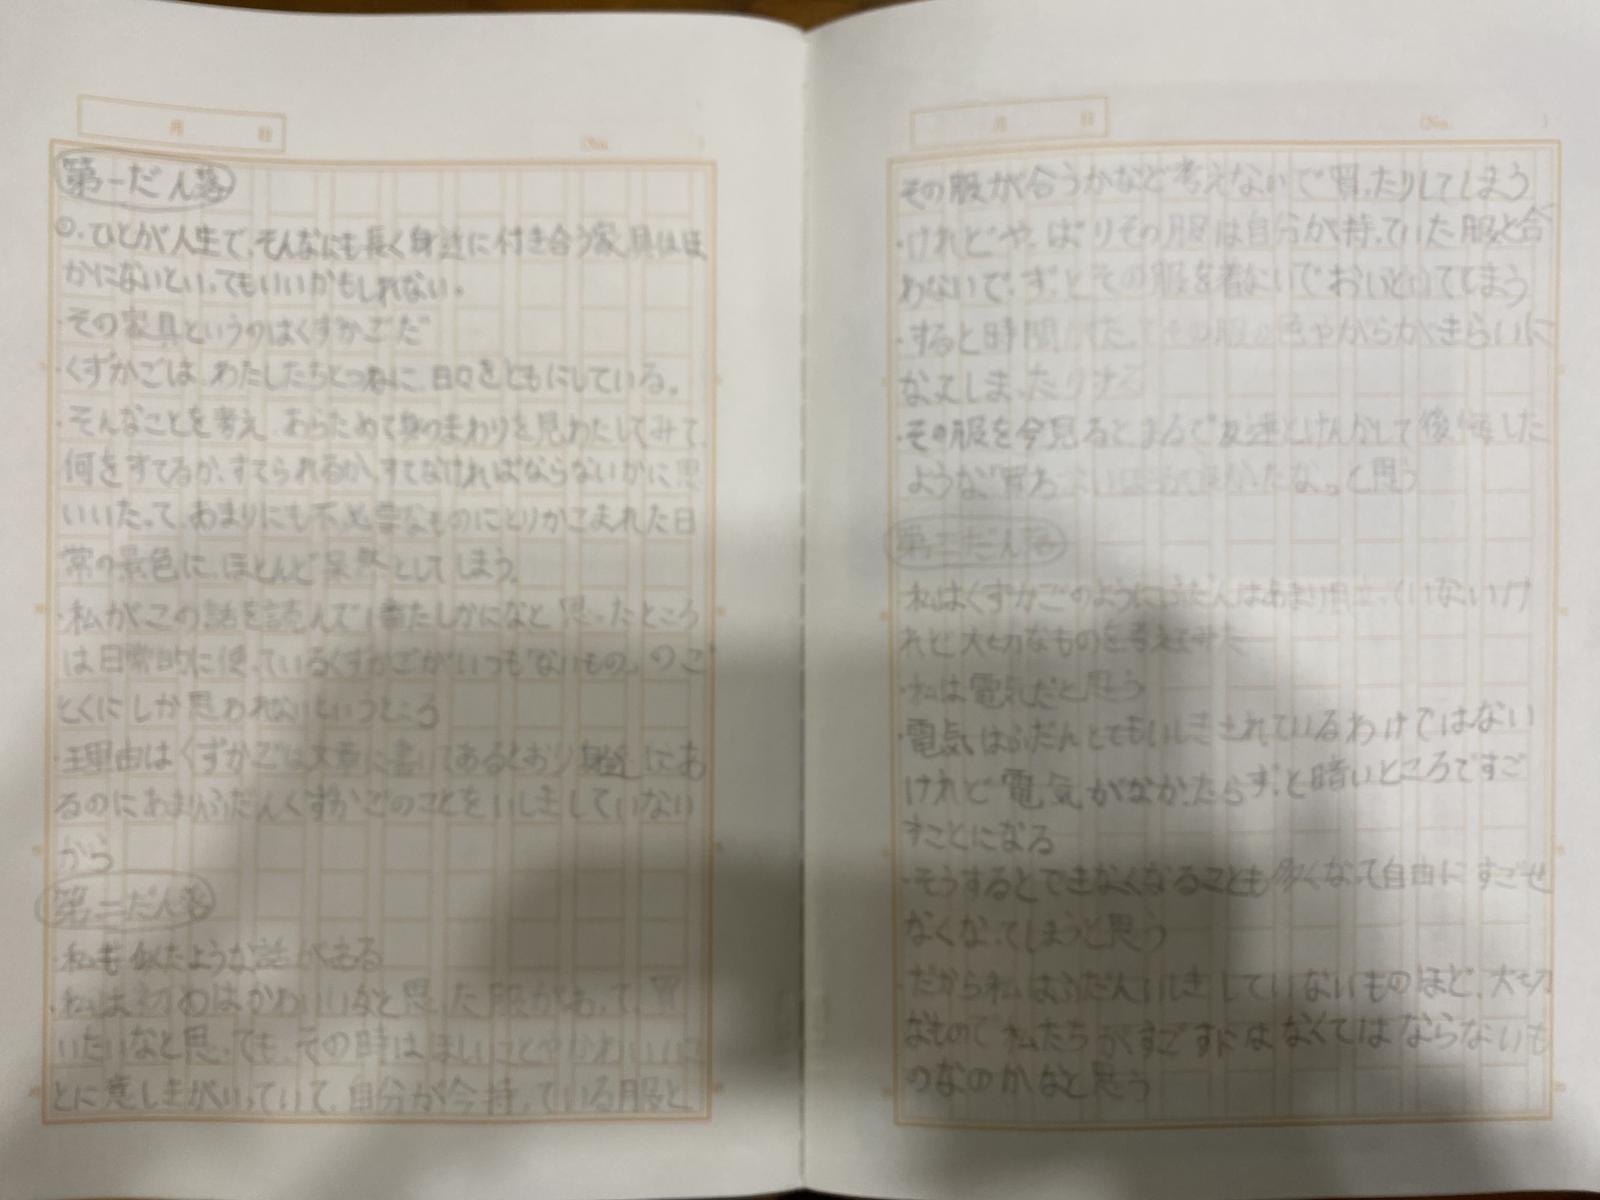 月 日
(No. )
第一だん落
・ひとが人生で、そんなにも長く身近に付き合う家具はほ
かにないといってもいいかもしれない。
・その家具というのはくずかごだ
・くずかごは、わたしたちとつねに、日々をともにしている。
・そんなことを考え、あらためて身のまわりを見わたしてみて、
何をすてるか、すてられるか、すてなければならないかに思
いいたって、あまりにも不必要なものにとりかこまれた日
常の景色に、ほとんど呆然としてしまう。
・私がこの話を読んで1番たしかになと思ったところ
は日常的に使っているくずかごがいつも「ないもの」のご
とくにしか思われないというところ
・理由はくずかごは文章に書いてあるとおり身近にあ
るのにあまりふだんくずかごのことをいしきしていない
から
第二だん落
・私も似たような話がある
・私は初めはかわいいなと思った服があって、買
いたいなと思っても、その時はほしいことやかわいいこ
とに意しきがいっていて、自分が今持っている服と
月 日
(No. )
その服が合うかなど考えないで買ったりしてしまう
・けれどやっぱりその服は自分が持っていた服と合
わないで、ずっとその服を着ないでおいといてしまう
・すると時間がたってその服の色やがらがきらいに
なってしまったりする
・その服を今見るとまるで友達とけんかして後悔した
ような「買わ
 と思う
第三だん落
・私はくずかごのようにふだんはあまり目立っていないけ
れど大切なものを考えてみた
・私は電気だと思う
・電気はふだんとてもいしきされているわけではない
けれど電気がなかったらずっと暗いところですご
すことになる
・そうするとできなくなることも多くなって自由にすごせ
なくなってしまうと思う
・だから私はふだんいしきしていないものほど、大切
なもので私たちがすごすにはなくてはならないも
のなのかなと思う